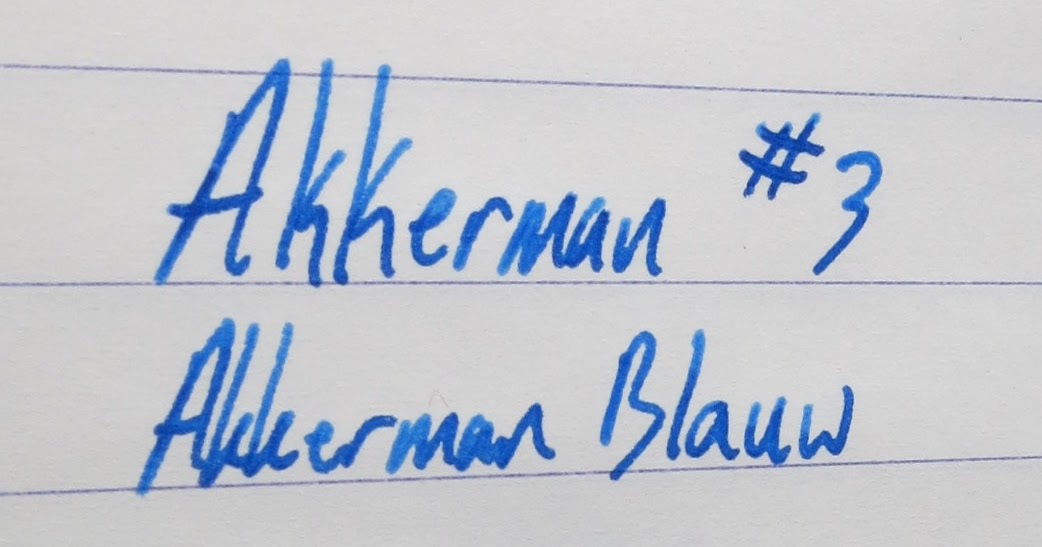 Akkerman #3
Akkerman Blauw